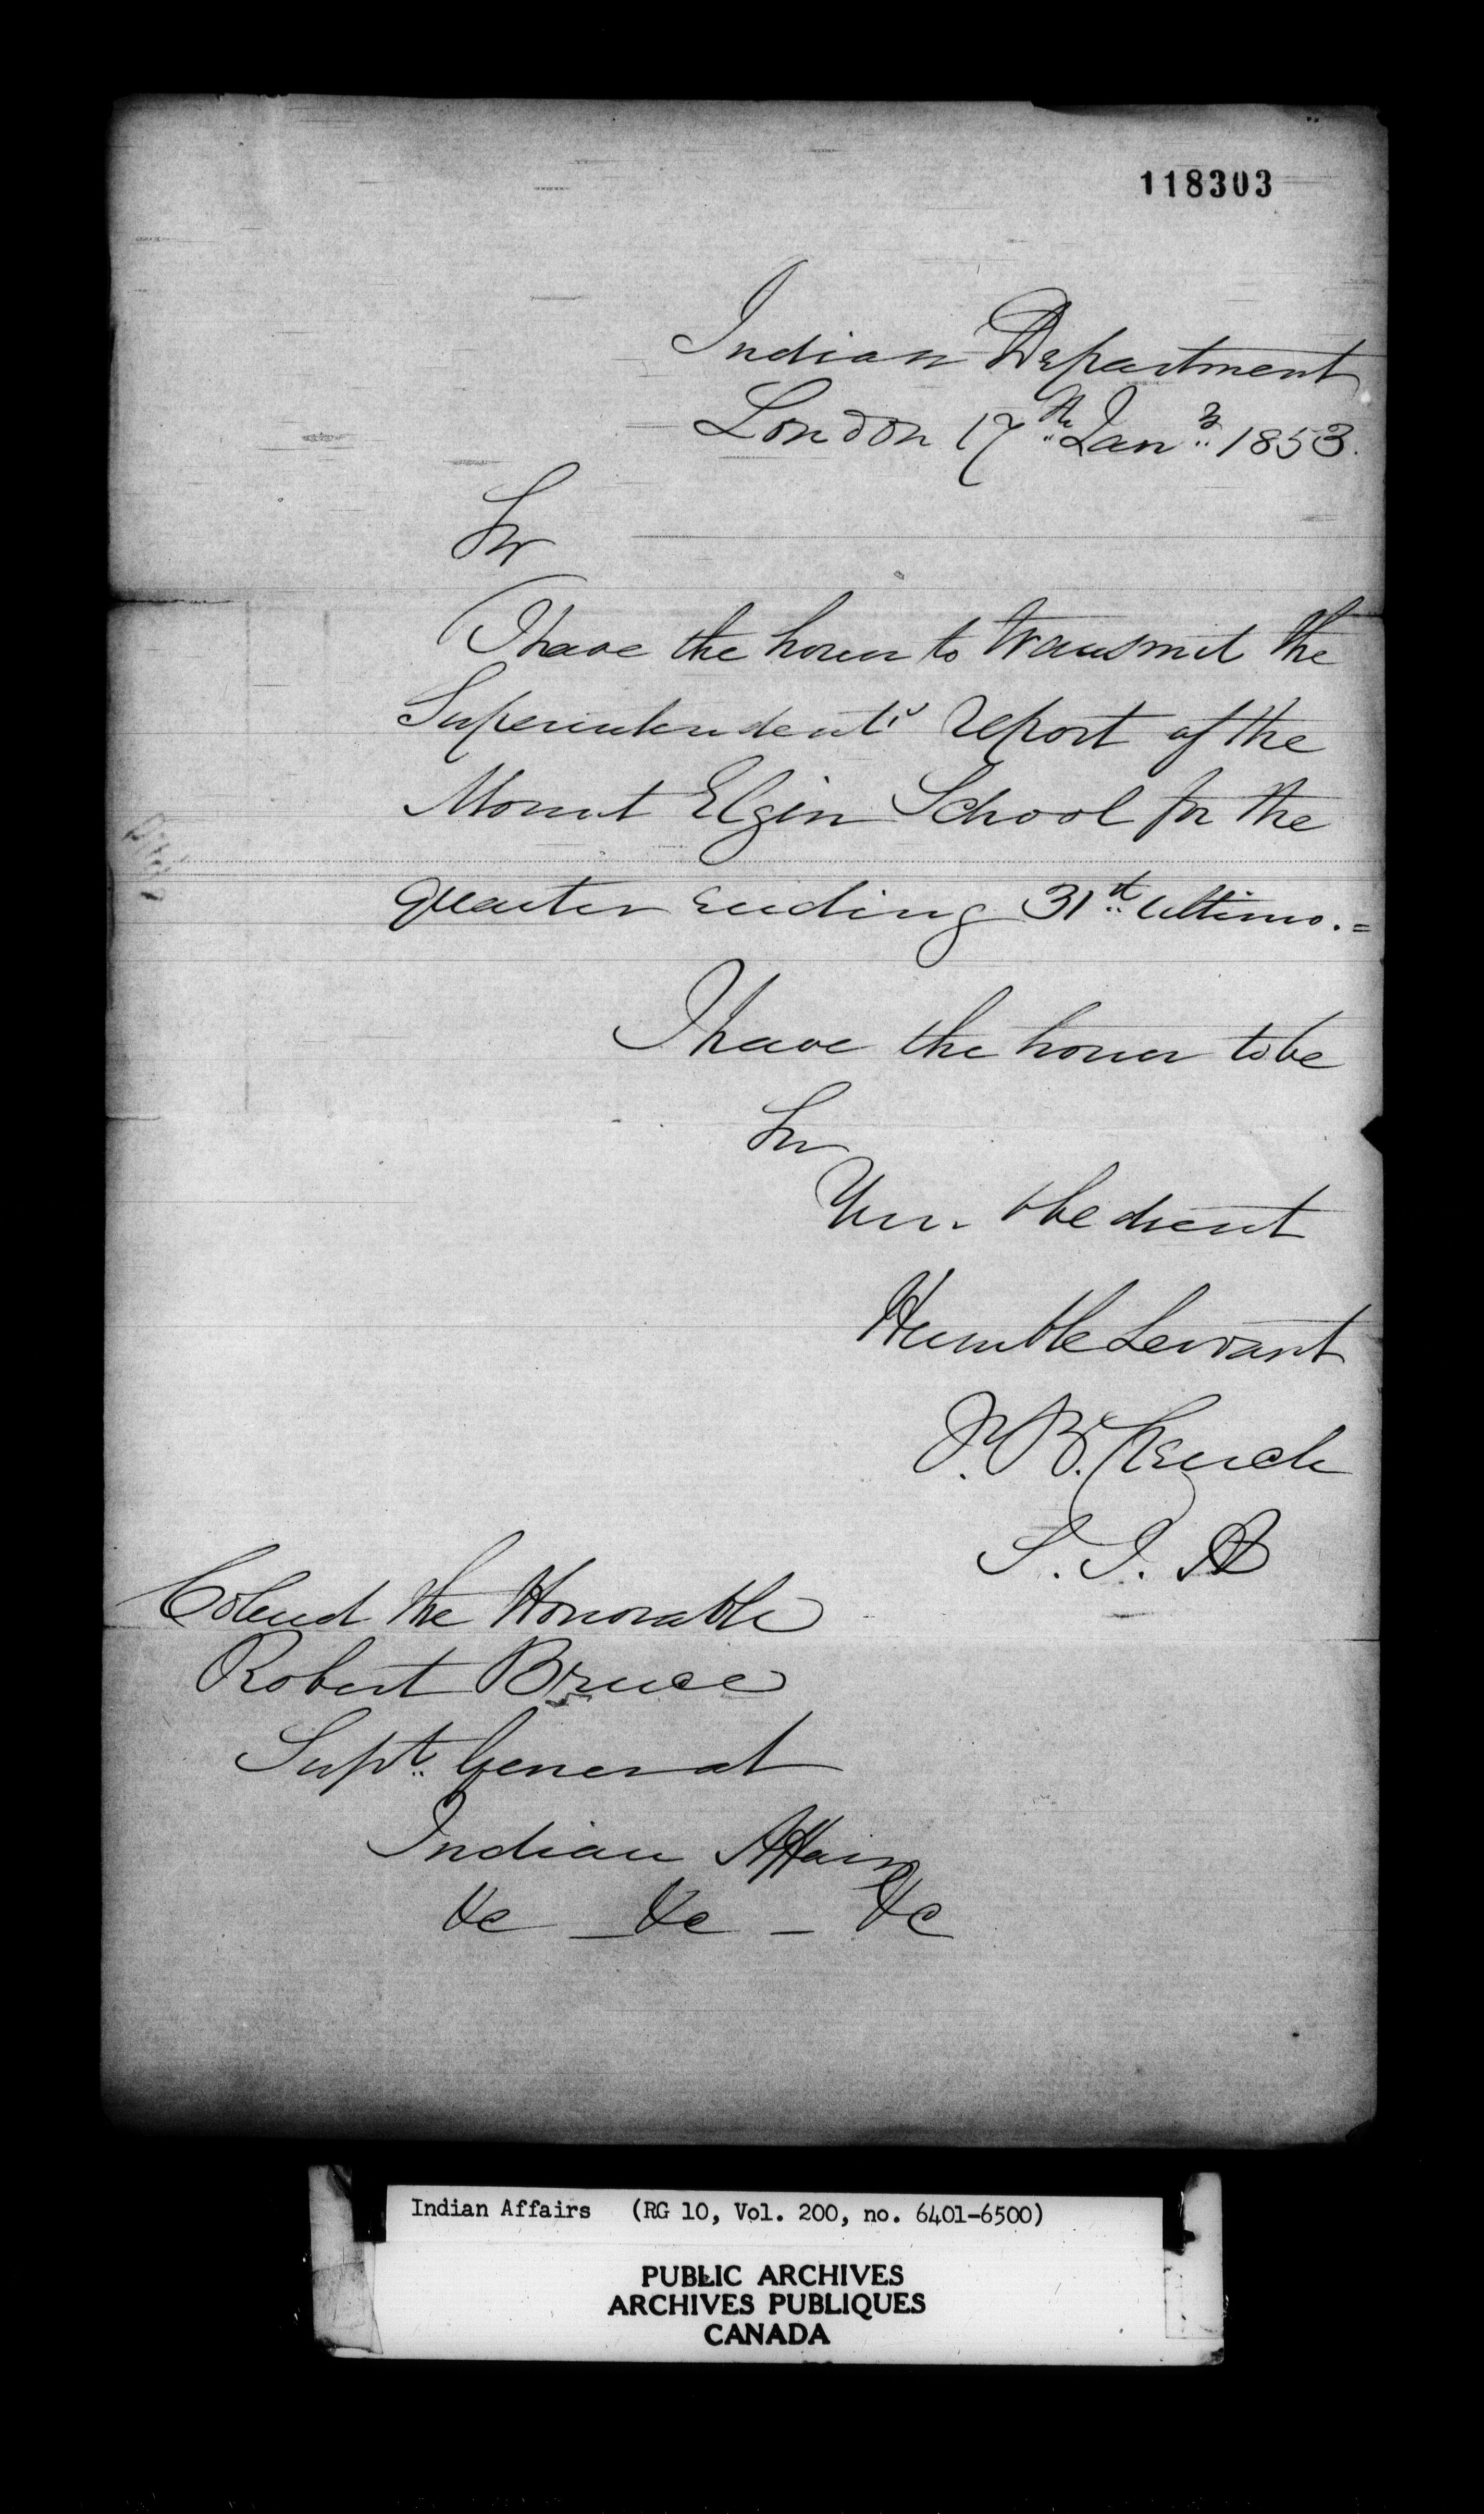 118303
Indian Department
London 17th Jany 1853.
Sir
I have the honor to transmit the
Superintendent's report of the
Mount Elgin School for the
quarter ending 31st ultimo. =
I have the honor to be
Sir
Your obedient
Humble Servant
J. B. Clench
S. I. A
Colonel the Honorable
Robert Bruce
Supt. General
Indian Affairs
&c _ &c _ &c
Indian Affairs (RG 10, Vol. 200, no. 6401-6500)
PUBLIC ARCHIVES
ARCHIVES PUBLIQUES
CANADA